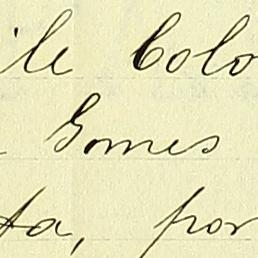 ile Colo
Gomes
ta, por